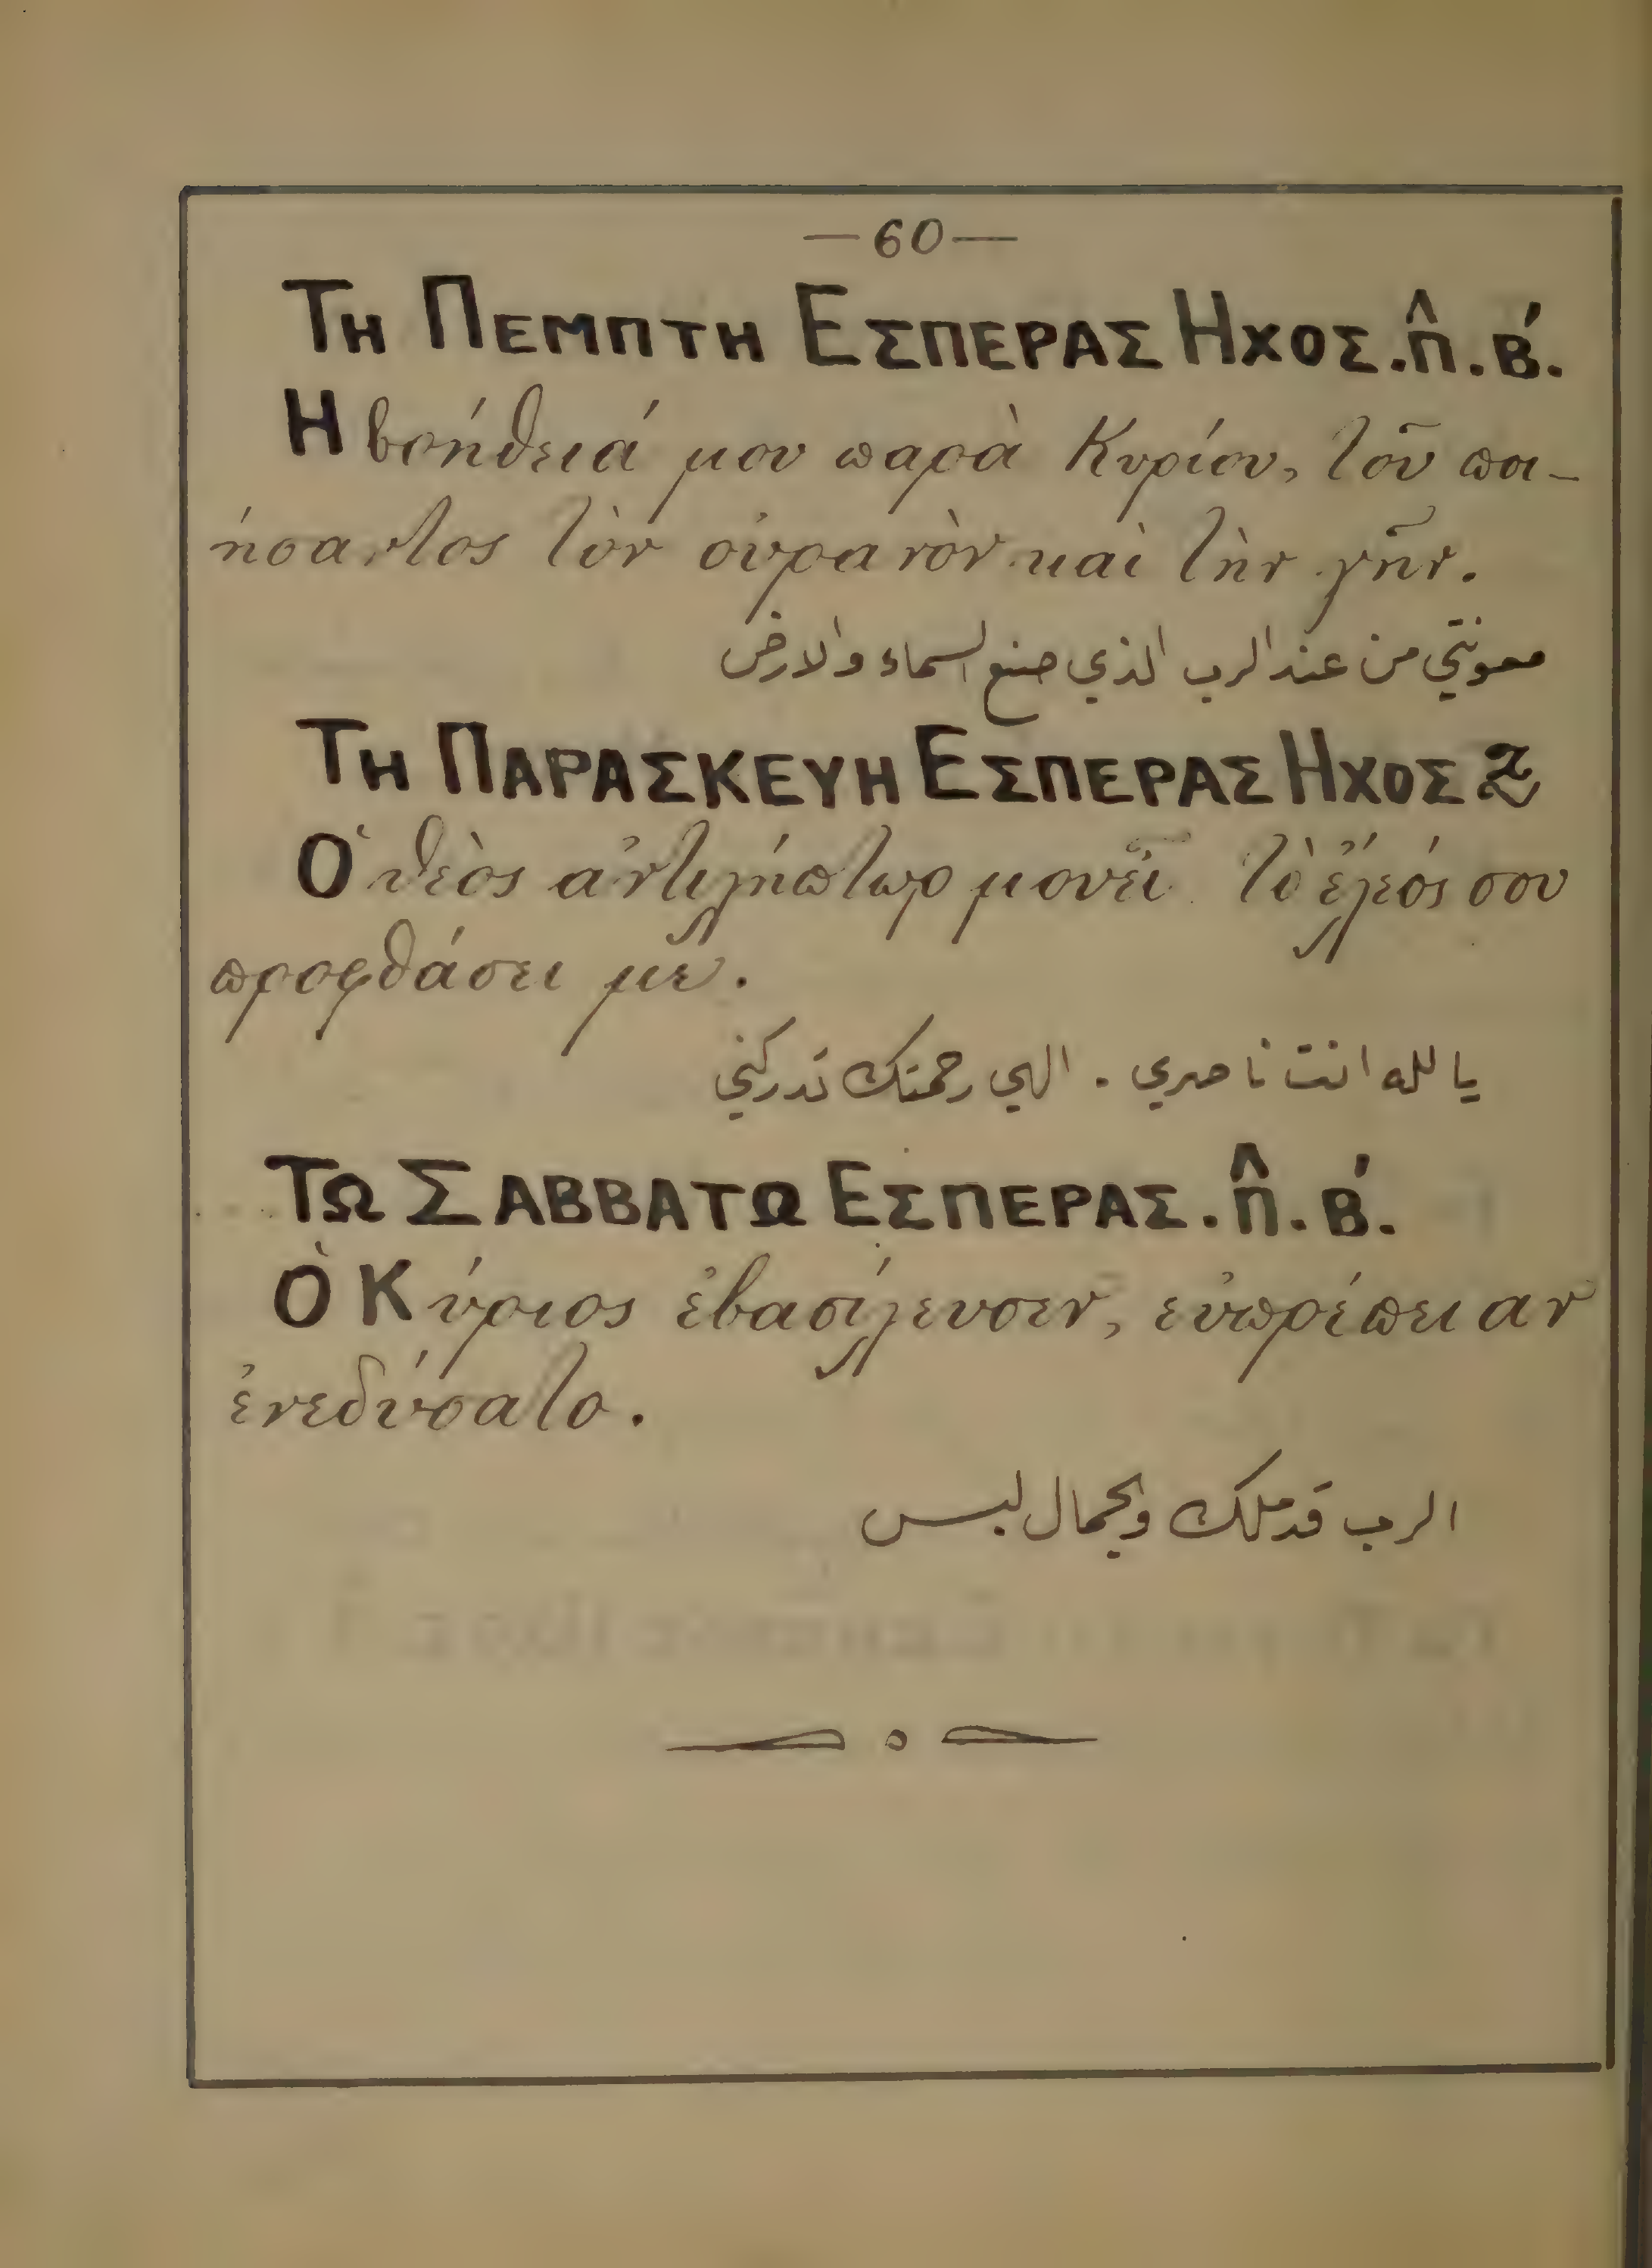 —60—
ΤΗ ΠΕΜΠΤΗ ΕΣΠΕΡΑΣ ΗΧΟΣ.π̂.Β́.
Η βοήθειά μου παρὰ Κυρίου, τοῦ ποι-
ήσαντος τὸν οὐρανὸν καὶ τὴν γῆν.
معونتي من عند الرب الذي صنع السماء والارض
ΤΗ ΠΑΡΑΣΚΕΥΗ ΕΣΠΕΡΑΣ ΗΧΟΣ
Ὁ θεὸς ἀντιλήπτωρ μου εἶ τὸ ἔλεός σου
προφθάσει με.
يا لله انت ناصري . الهي رحمتك تدركني
ΤΩ ΣΑΒΒΑΤΩ ΕΣΠΕΡΑΣ.π̂.Β́.
Ὁ Κύριος ἐβασίλευσεν, εὐπρέπειαν
ἐνεδύσατο.
الرب قد ملك وبجمال لبس